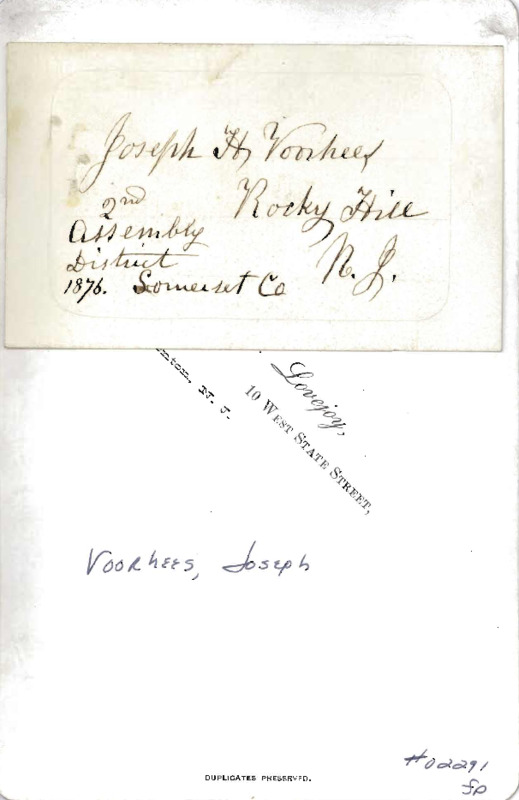 Joseph H. Voorhees
2nd
Rocky Hill
Assembly
District
N. J.
1876. Somerset Co
nton, N. J.
Lovejoy,
10 West State Street,
Voorhees, Joseph
#02291
DUPLICATES PRESERVED.